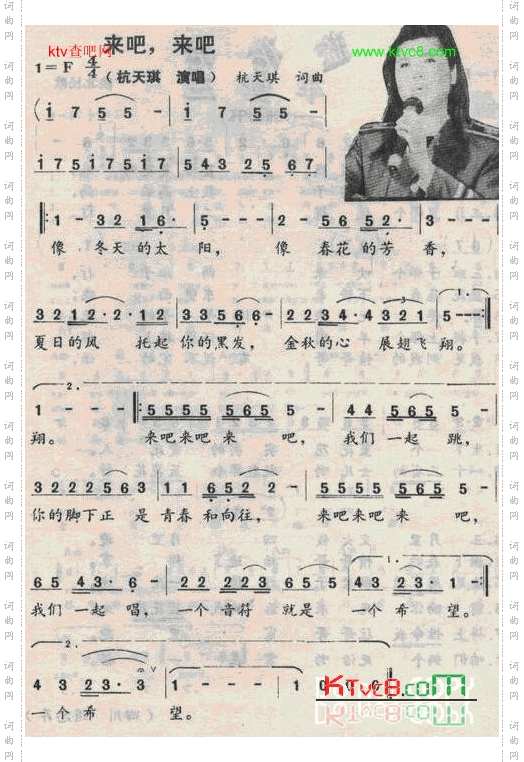 ktv查吧网
来吧，来吧
www.ktvc8.com
1=F 4/4
（杭天琪 演唱） 杭天琪 词曲
(i 7 5 5 - | i 7 5 5 - |
i 7 5 i 7 5 i 7 | 5 4 3 2 5 6 7 |
1 - 3 2 1 6· | 5 - - - | 2 - 5 6 5 2· | 3 - - - |
像 冬天 的太 阳， 像 春花 的芳 香，
3 2 1 2· 2· 2 1 | 3 3 5 6 6· | 2 2 3 4· 4 3 2 1 | 5 - - - :|
夏日的风 托起 你的黑发， 金秋的心 展翅飞 翔。
2.
1 - - - |: 5 5 5 5 5 6 5 | 5 - - - | 4 4 5 6 5 5 - |
翔。 来吧来吧 来 吧， 我们 一起 跳，
3 2 2 2 2 5 6 3 | 1 1 6 5 2 2 - | 5 5 5 5 5 6 5 | 5 - - - |
你的脚下正 是 青春 和向往， 来吧来吧 来 吧，
6 5 4 3· 6 - | 2 2 2 2 3 6 5 5 | 4 3 2 3· 1 - :|
我们 一起 唱， 一个 音符 就是 一个 希 望。
2.
4 3 2 3· 3 | 1 - - - | 1
一个 希 望。
KTvc8.com
词曲网